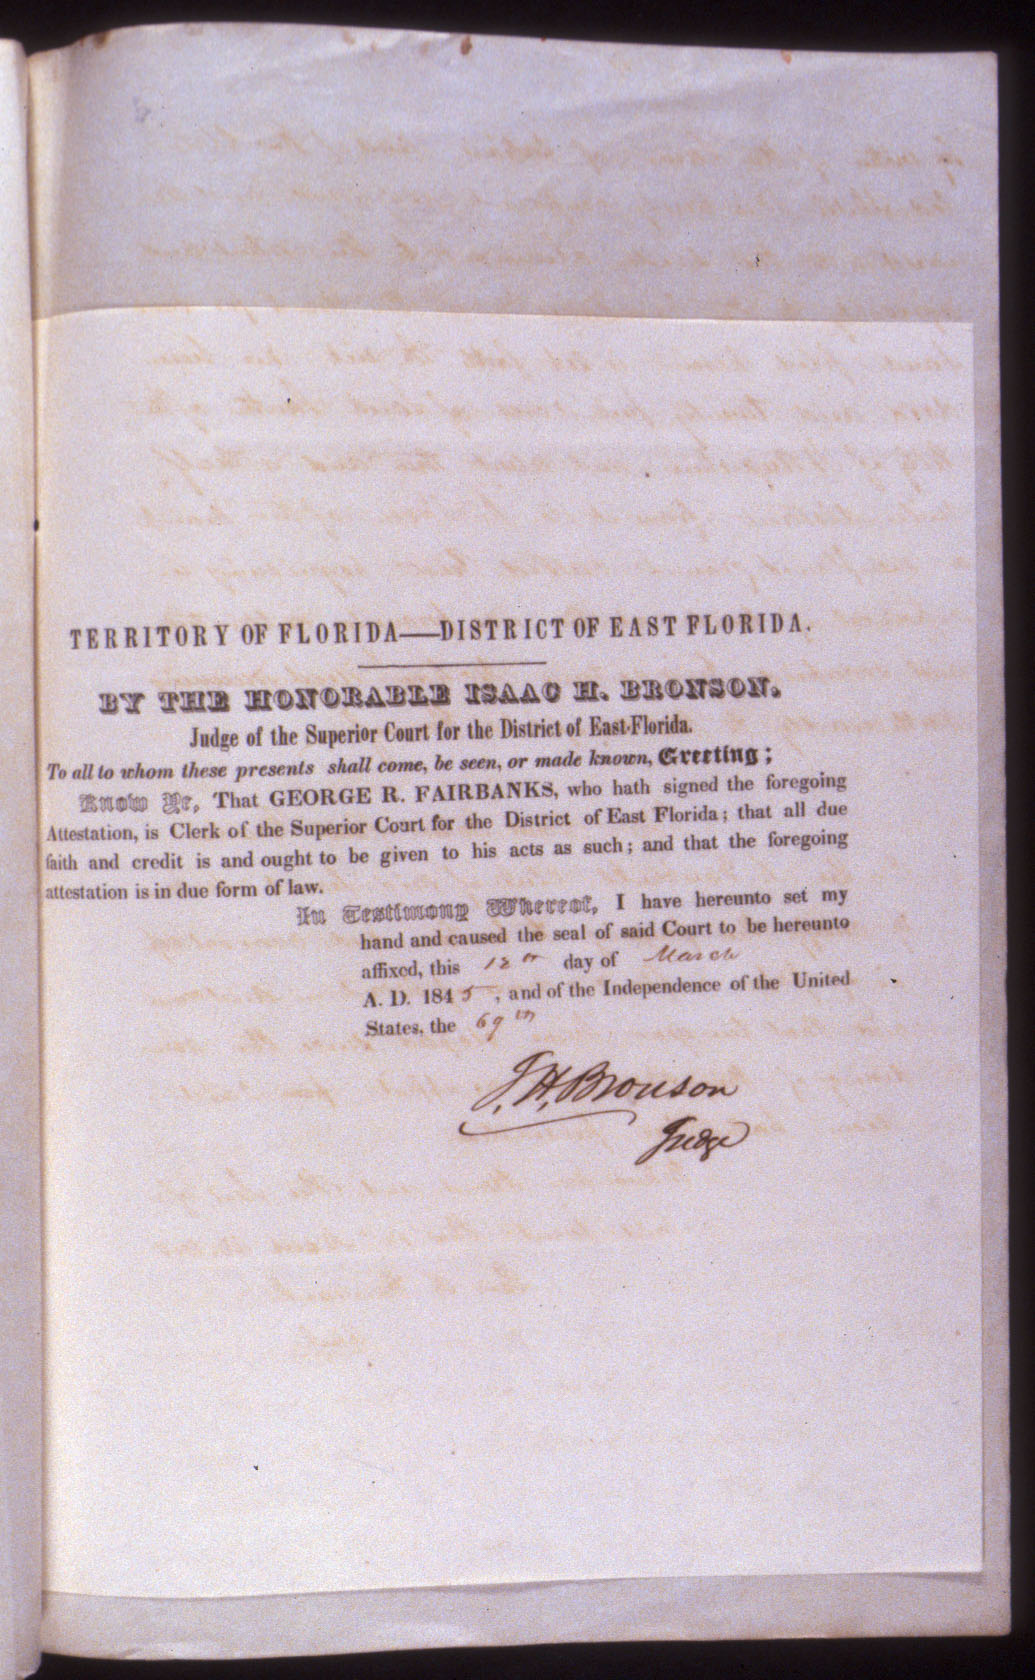 TERRITORY OF FLORIDA—DISTRICT OF EAST FLORIDA.
BY THE HONORABLE ISAAC H. BRONSON.
Judge of the Superior Court for the District of East-Florida.
To all to whom these presents shall come, be seen, or made known, Greeting;
Know Ye, That GEORGE R. FAIRBANKS, who hath signed the foregoing
Attestation, is Clerk of the Superior Court for the District of East Florida; that all due
faith and credit is and ought to be given to his acts as such; and that the foregoing
attestation is in due form of law.
In Testimony Whereof, I have hereunto set my
hand and caused the seal of said Court to be hereunto
affixed, this 12th day of March
A. D. 1845, and of the Independence of the United
States, the 69th
I. H. Bronson
Judge